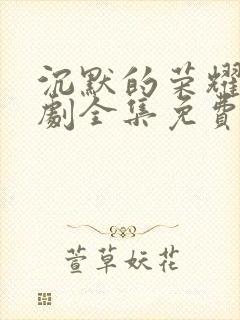 沉默的荣耀
劇全集免費
萱草妖花